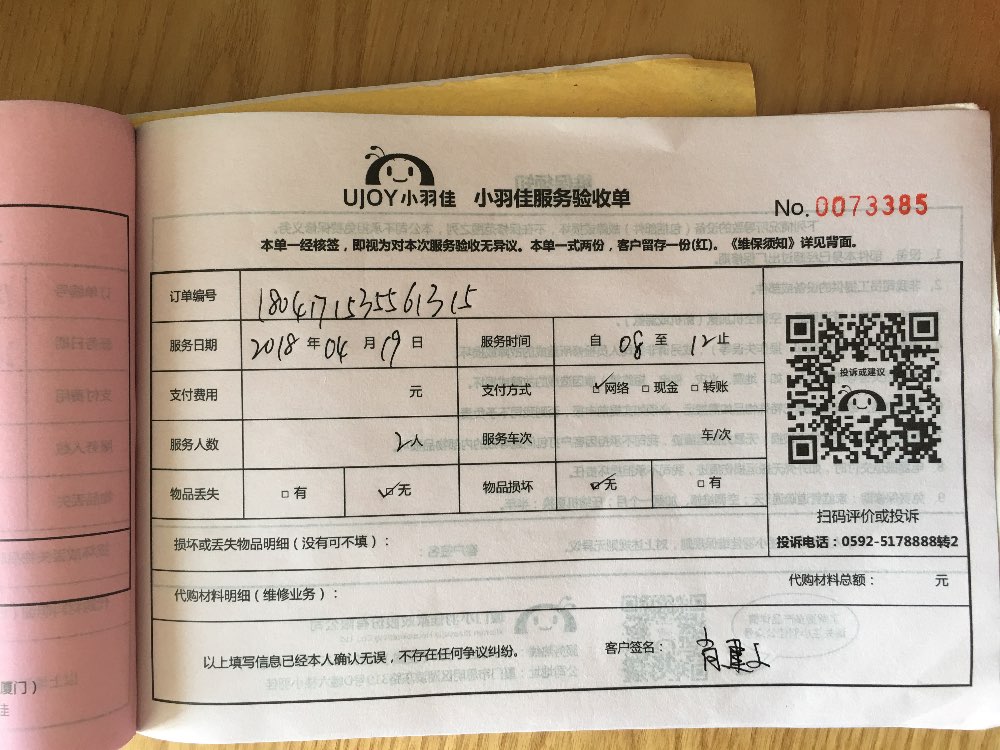 UJOY小羽佳 小羽佳服务验收单
No. 0073385
本单一经核签，即视为对本次服务验收无异议。本单一式两份，客户留存一份(红)。《维保须知》详见背面。
订单编号 1804171535561315
服务日期 2018 年 04 月 19 日 服务时间 自 08 至 12 止
支付费用 元 支付方式 ☑网络 □现金 □转账
服务人数 2人 服务车次 车/次
物品丢失 □有 ☑无 物品损坏 ☑无 □有
投诉或建议
扫码评价或投诉
投诉电话：0592-5178888转2
损坏或丢失物品明细（没有可不填）：
代购材料明细（维修业务）：
代购材料总额： 元
以上填写信息已经本人确认无误，不存在任何争议纠纷。
客户签名：
厦门）
佳